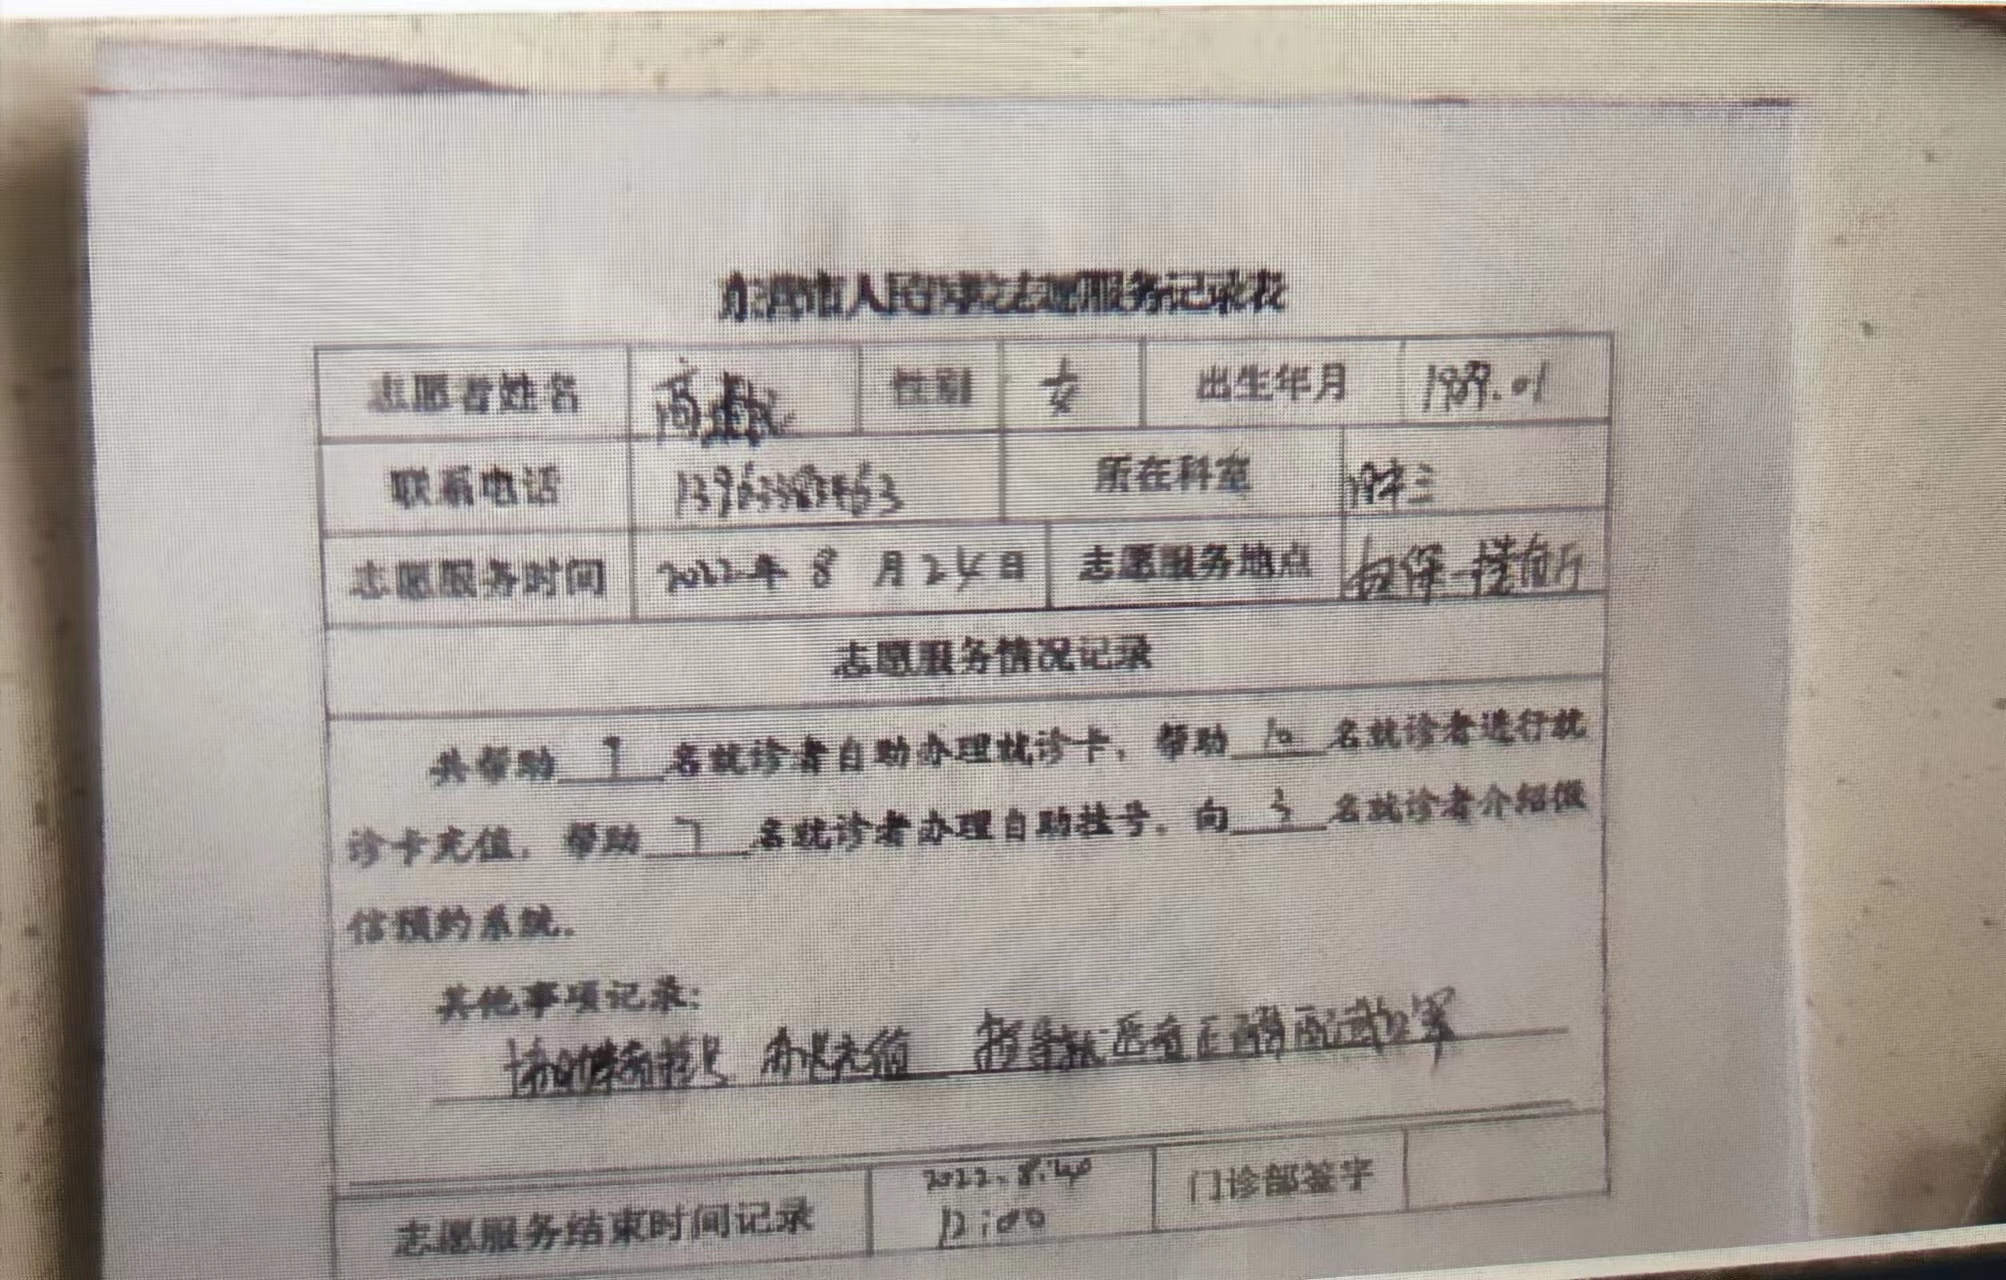 东营市人民医院志愿服务记录表
志愿者姓名 高 性别 女 出生年月 1989.01
联系电话 所在科室 三
志愿服务时间 2022年 8 月 24 日 志愿服务地点
志愿服务情况记录
共帮助 7 名就诊者自助办理就诊卡，帮助 10 名就诊者进行就
诊卡充值，帮助 7 名就诊者办理自助挂号。向 3 名就诊者介绍微
信预约系统。
其他事项记录：
协助患者挂号 办卡充值 指导就医者正确佩戴口罩
2022.8.
志愿服务结束时间记录 12:00 门诊部签字